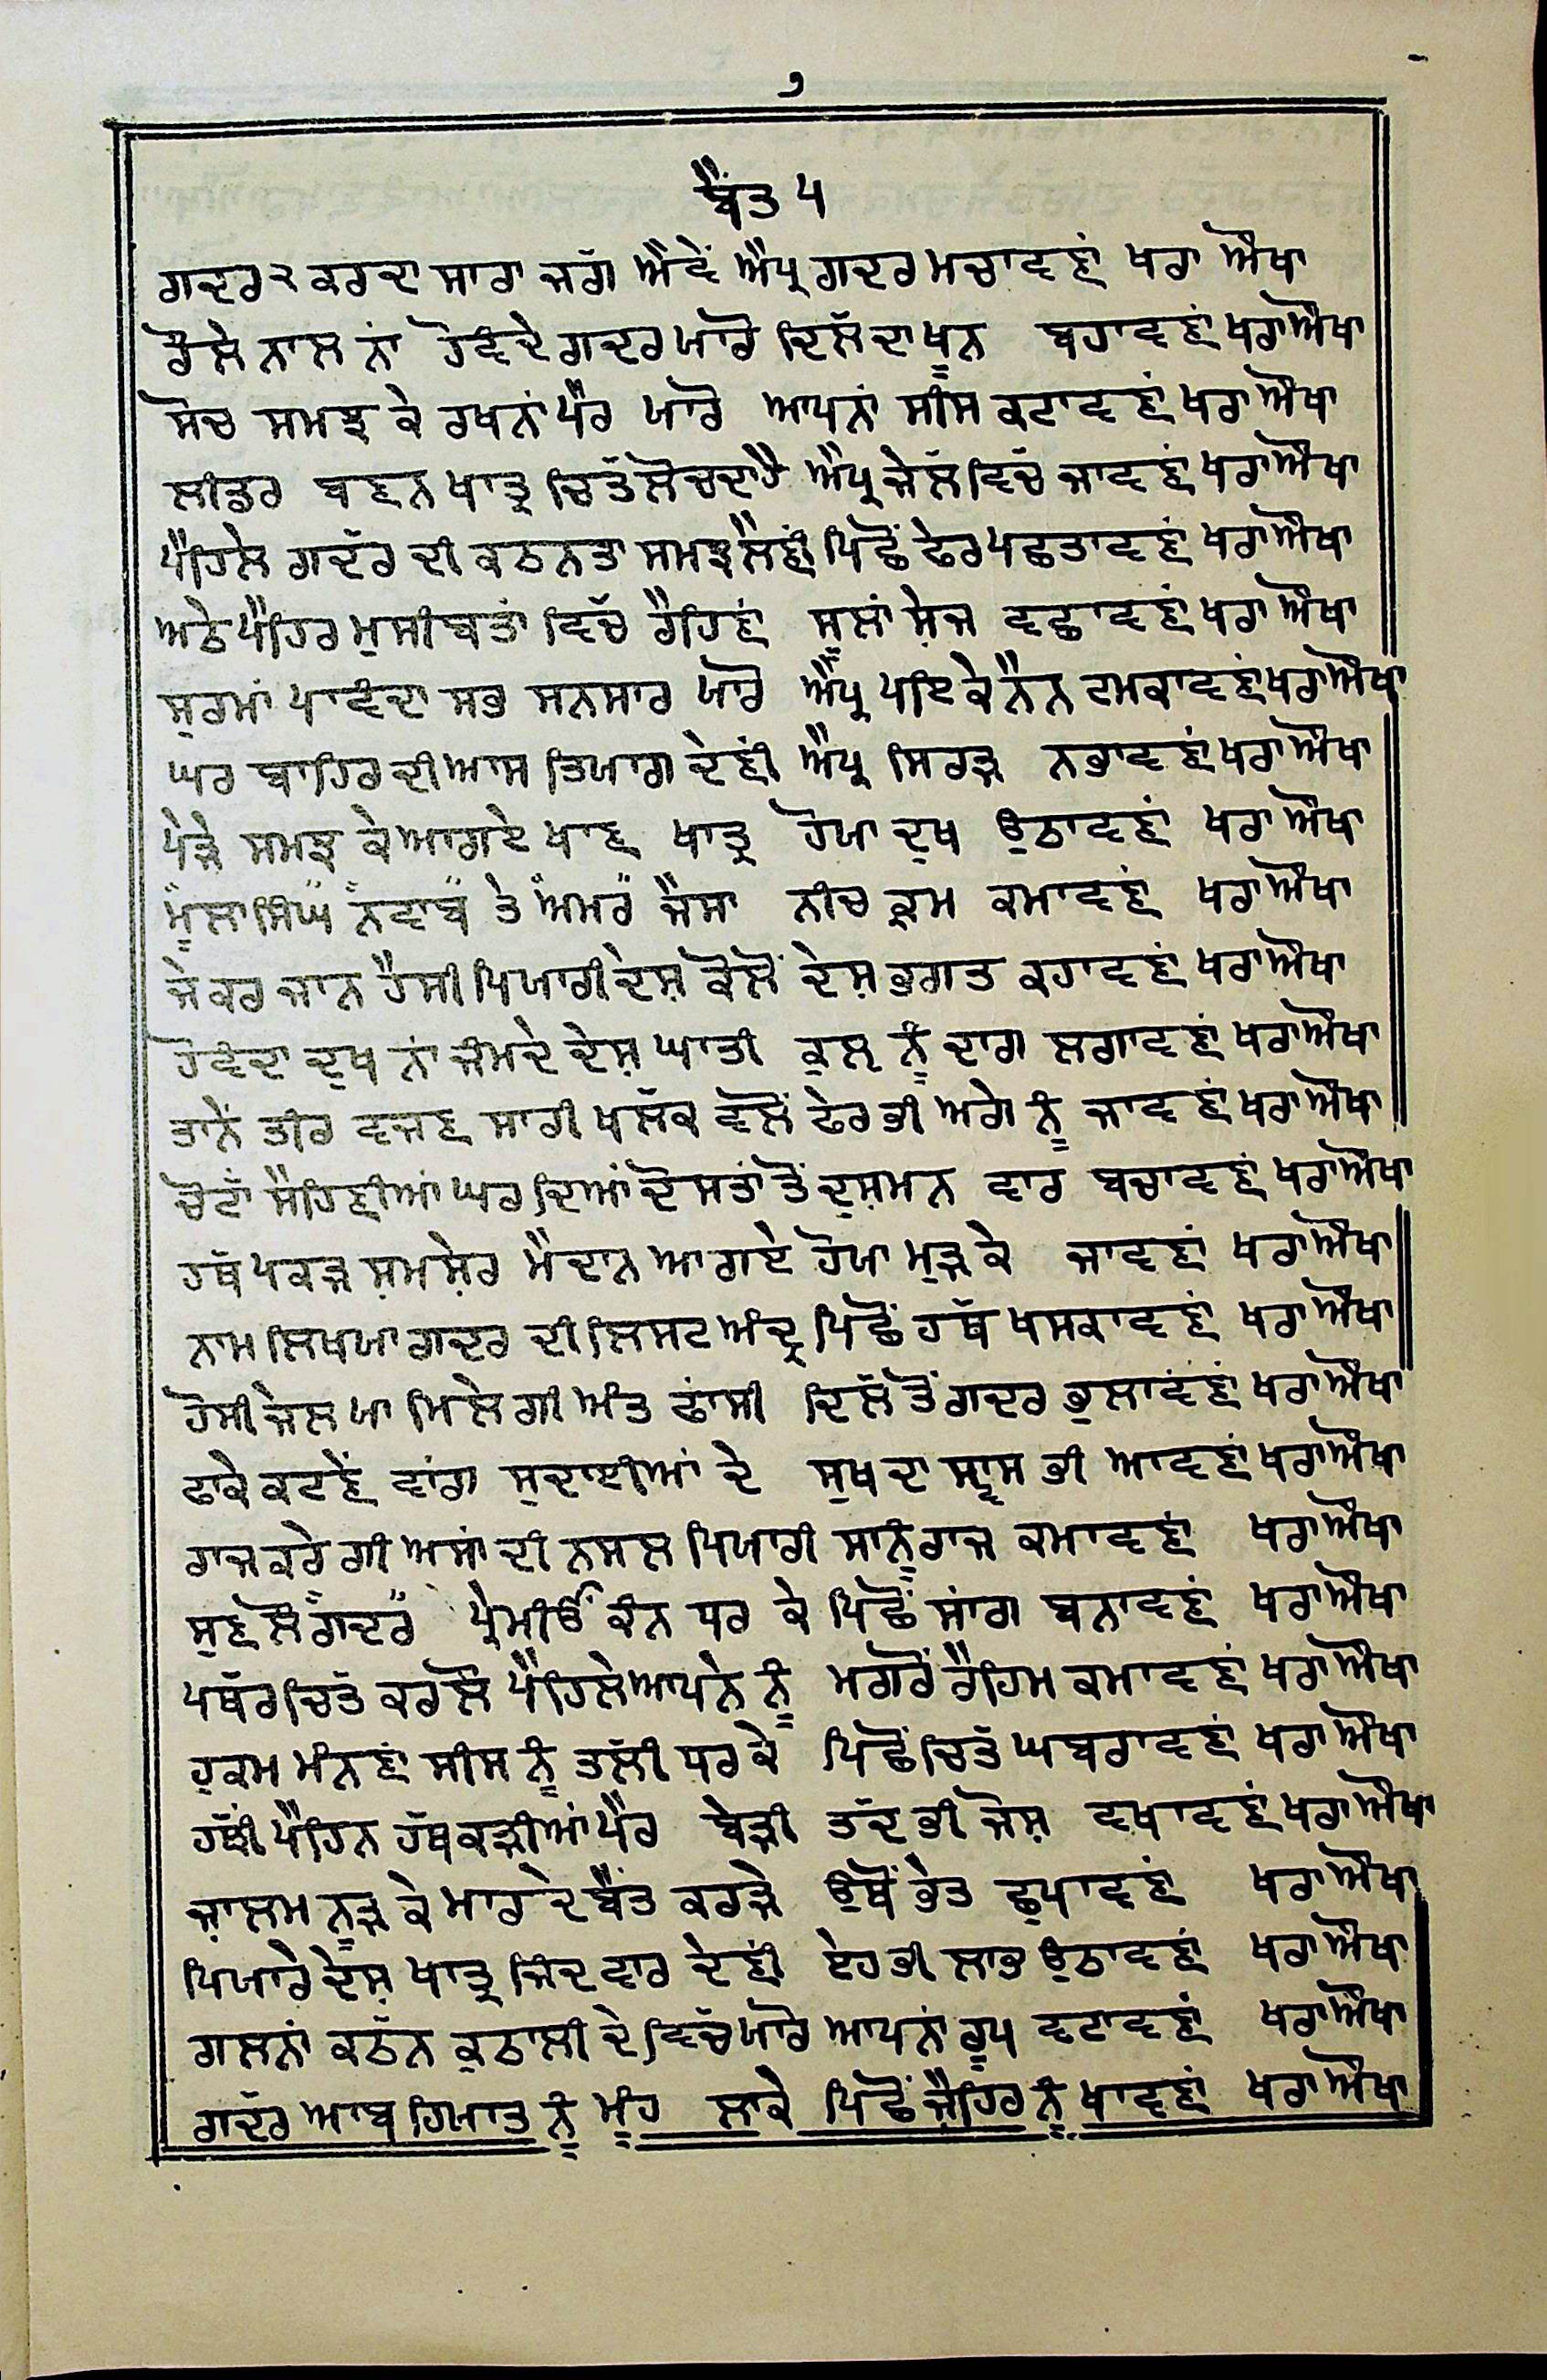 ੭
ਬੈਂਤ ੫
ਗਦਰ ੨ ਕਰਦਾ ਸਾਰਾ ਜਗੱ ਐਵੇਂ ਐਪ੍ਰ ਗਦਰ ਮਚਾਵਣਾਂ ਖਰਾ ਔਖਾ
ਰੌਲੇ ਨਾਲ ਨਾਂ ਹੋਵੰਦੇ ਗਦਰ ਯਾਰੋ ਦਿਲੱ ਦਾ ਖੂਨ ਬਹਾਵਣਾਂ ਖਰਾ ਔਖਾ
ਸੋਚ ਸਮਝ ਕੇ ਰਖਨਾਂ ਪੈਰ ਯਾਰੋ ਆਪਨਾਂ ਸੀਸ ਕਟਾਵਣਾਂ ਖਰਾ ਔਖਾ
ਲੀਡਰ ਬਣਨ ਖਾਤ੍ਰ ਚਿਤੱ ਲੋਚਦਾ ਹੈ ਐਪ੍ਰ ਜੇਲੱ ਵਿਚੱ ਜਾਵਣਾਂ ਖਰਾ ਔਖਾ
ਪੈਹਿਲੇ ਗਦੱਰ ਦੀ ਕਠਨਤਾ ਸਮਝ ਲੈਣੀਂ ਪਿਛੋਂ ਫੇਰ ਪਛਤਾਵਣਾਂ ਖਰਾ ਔਖਾ
ਅਠੇ ਪੈਹਿਰ ਮੁਸੀਬਤਾਂ ਵਿਚੱ ਰੈਹਿਣਾਂ ਸੂਲਾਂ ਸੇਜ ਵਛਾਵਣਾਂ ਖਰਾ ਔਖਾ
ਸੁਰਮਾਂ ਪਾਵੰਦਾ ਸਭ ਸਨਸਾਰ ਯਾਰੋ ਐਪ੍ਰ ਪਾਇਕੇ ਨੈਨ ਟਮਕਾਵਣਾਂ ਖਰਾ ਔਖਾ
ਘਰ ਬਾਹਿਰ ਦੀ ਆਸ ਤਿਯਾਗ ਦੇਣੀਂ ਐਪ੍ਰ ਸਿਰੜ ਨਭਾਵਣਾਂ ਖਰਾ ਔਖਾ
ਪੇੜੇ ਸਮਝ ਕੇ ਆਗਏ ਖਾਣ ਖਾਤ੍ਰ ਹੋਯਾ ਦੁਖ ਉਠਾਵਣਾਂ ਖਰਾ ਔਖਾ
"ਮੂਲਾ ਸਿੰਘ" "ਨਵਾਬ" ਤੇ "ਅਮਰ" ਜੈਸਾ ਨੀਚ ਕ੍ਰਮ ਕਮਾਵਣਾਂ ਖਰਾ ਔਖਾ
ਜੇਕਰ ਜਾਨ ਹੈਸੀ ਪਿਯਾਰੀ ਦੇਸ਼ ਕੋਲੋਂ ਦੇਸ਼ ਭਗਤ ਕਹਾਵਣਾਂ ਖਰਾ ਔਖਾ
ਹੋਵੰਦਾ ਦੁਖ ਨਾਂ ਜੰਮਦੇ ਦੇਸ਼ ਘਾਤੀ ਕੁਲ ਨੂੰ ਦਾਗ ਲਗਾਵਣਾਂ ਖਰਾ ਔਖਾ
ਤਾਨੇਂ ਤੀਰ ਵਜਣ ਸਾਰੀ ਖਲੱਕ ਵੱਲੋਂ ਫੇਰ ਭੀ ਅਗੇ ਨੂੰ ਜਾਵਣਾਂ ਖਰਾ ਔਖਾ
ਚੋਟਾਂ ਸੈਹਿਣੀਆਂ ਘਰ ਦਿਆਂ ਦੋਸਤਾਂ ਤੋਂ ਦੁਸ਼ਮਨ ਵਾਰ ਬਚਾਵਣਾਂ ਖਰਾ ਔਖਾ
ਹਥੱ ਪਕੜ ਸ਼ਮਸ਼ੇਰ ਮੈਦਾਨ ਆਗਏ ਹੋਯਾ ਮੁੜਕੇ ਜਾਵਣਾਂ ਖਰਾ ਔਖਾ
ਨਾਮ ਲਿਖਯਾ ਗਦਰ ਦੀ ਲਿਸਟ ਅੰਦ੍ਰ ਪਿਛੋਂ ਹਥੱ ਖਸਕਾਵਣਾਂ ਖਰਾ ਔਖਾ
ਹੋਸੀ ਜੇਲ ਯਾ ਮਿਲੇਗੀ ਅੰਤ ਫਾਂਸੀ ਦਿਲੱ ਤੋਂ ਗਦਰ ਭੁਲਾਵਣਾਂ ਖਰਾ ਔਖਾ
ਫਾਕੇ ਕਟਣੇਂ ਵਾਂਗ ਸੁਦਾਈਆਂ ਦੇ ਸੁਖ ਦਾ ਸ੍ਵਾਸ ਭੀ ਆਵਣਾਂ ਖਰਾ ਔਖਾ
ਰਾਜ ਕਰੂਗੀ ਅਸਾਂ ਦੀ ਨਸਲ ਪਿਯਾਰੀ ਸਾਨੂੰ ਰਾਜ ਕਮਾਵਣਾਂ ਖਰਾ ਔਖਾ
ਸੁਣੋ ਲੌ "ਗਦਰ" ਪ੍ਰੇਮੀਓਂ ਕੰਨ ਧਰ ਕੇ ਪਿਛੋਂ ਸਾਂਗ ਬਨਾਵਣਾਂ ਖਰਾ ਔਖਾ
ਪਥੱਰ ਚਿਤੱ ਕਰਲੌ ਪੈਹਿਲੇ ਆਪਨੇ ਨੂੰ ਮਗਰੋਂ ਰੈਹਿਮ ਕਮਾਵਣਾਂ ਖਰਾ ਔਖਾ
ਹੁਕਮ ਮੰਨਣਾਂ ਸੀਸ ਨੂੰ ਤਲੀੱ ਧਰਕੇ ਪਿਛੋਂ ਚਿਤੱ ਘਬਰਾਵਣਾਂ ਖਰਾ ਔਖਾ
ਹਥੀਂ ਪੈਹਿਨ ਹਥੱਕੜੀਆਂ ਪੈਰ ਬੇੜੀ ਤਦੱ ਭੀ ਜੋਸ਼ ਵਖਾਵਣਾਂ ਖਰਾ ਔਖਾ
ਜ਼ਾਲਮ ਨੂੜ ਕੇ ਮਾਰਦੇ ਬੈਂਤ ਕਰੜੇ ਉਥੋਂ ਭੇਤ ਛੁਪਾਵਣਾਂ ਖਰਾ ਔਖਾ
ਪਿਯਾਰੇ ਦੇਸ਼ ਖਾਤ੍ਰ ਜਿੰਦ ਵਾਰ ਦੇਣੀਂ ਏਹ ਭੀ ਲਾਭ ਉਠਾਵਣਾਂ ਖਰਾ ਔਖਾ
ਗਲਨਾਂ ਕਠੱਨ ਕੁਠਾਲੀ ਦੇ ਵਿਚੱ ਯਾਰੋ ਆਪਨਾਂ ਰੂਪ ਵਟਾਵਣਾਂ ਖਰਾ ਔਖਾ
ਗਦੱਰ ਆਬ ਹਿਯਾਤ ਨੂੰ ਮੂੰਹ ਲਾਕੇ ਪਿਛੋਂ ਜ਼ੈਹਿਰ ਨੂੰ ਖਾਵਣਾਂ ਖਰਾ ਔਖਾ